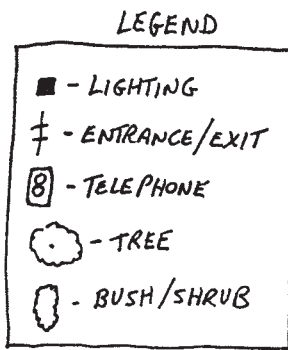 LEGEND
- LIGHTING
- ENTRANCE/EXIT
8 - TELEPHONE
- TREE
- BUSH/SHRUB